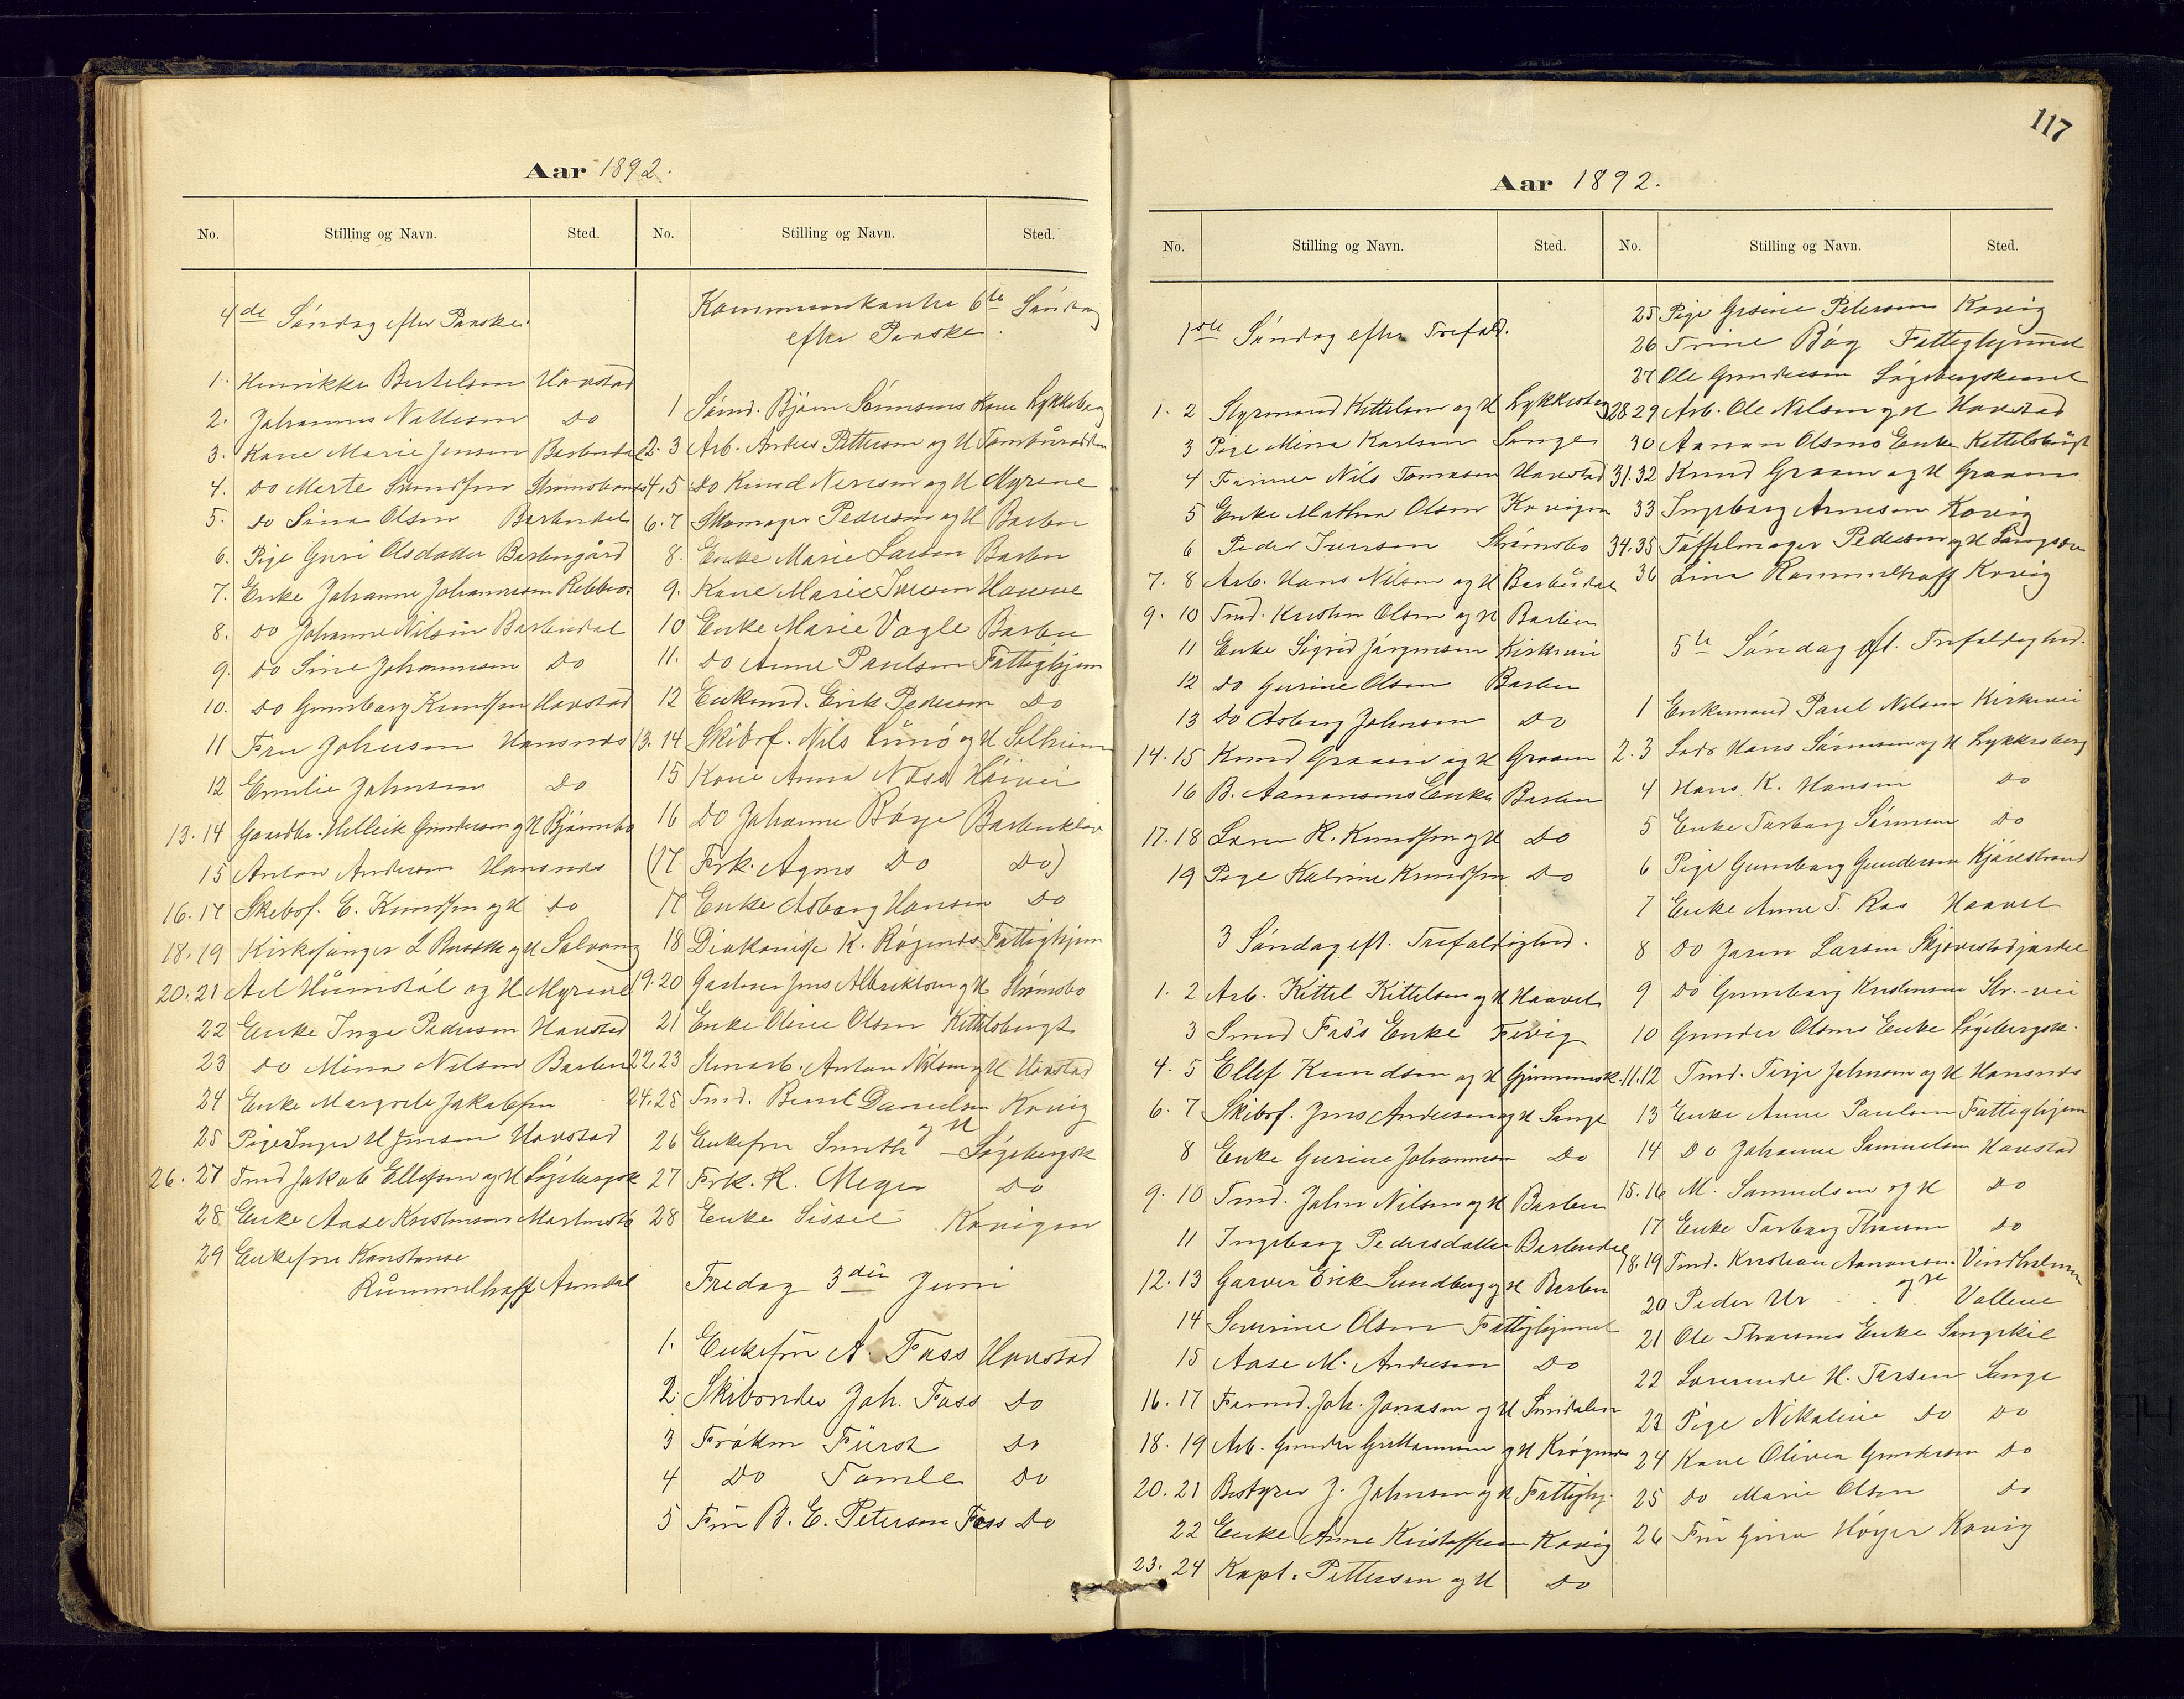 Aar 1892.
No. Stilling og Navn. Sted. No. Stilling og Navn. Sted.
4de Søndag efter Paaske.
1. Henrikke Bertelsen Havstad
2. Johannes Nattesen Do
3. Kone Marie Jensen Barbudal
4. Do Merte Strømsbo
5. Do Sina Olsen Barbudal
6. Pige Guri Olsdatter Barbugård
7. Enke Johanne Johannesen
8. Do Johanne Nilsen Barbudal
9. Do Sine Johannesen Do
10. Do Gunborg Knudsen Havstad
11 Fru Johnsen Hansnæs
12 Emilie Johnsen Do
13. 14 Gaardbr. Helleik Gundersen og H Bjørnebo
15 Anton Andersen Hansnæs
16. 17 Skibsf. E. Knudsen og H Do
18. 19 Kirkesanger L og H Solvang
20. 21 og H Myrene
22 Enke Inga Pedersen Havstad
23 Do Mina Nilsen Barbu
24 Enke Margrete Jakobsen
25 Pige Inger H Jensen Havstad
26. 27 Tmd Jakob Ellefsen og H Løgebergsk
28 Enke Aase Kristensen
29 Enkefru Konstanse
Rummelhoff Arendal
Kommunikanter 6te Søndag
efter Paaske.
1 Sømd. Bjørn Sørensens Kone Lykkeberg
2. 3 Arb. Anders Pettersen og H
4. 5 Do Knud Nersen og H Myrene
6. 7 Skomager Pedersen og H Barbu
8. Enke Marie Larsen Barbu
9. Kone Marie Iversen
10 Enke Marie Vagle Barbu
11. Do Anne Paulsen Fattighjem
12 Enkemd. Erik Pedersen Do
13. 14 Skibsf. Nils og H Solheim
15 Kone Anna Næss
16 Do Johanne Børge
(17 Frk. Agnes Do Do)
17 Enke Asborg Hansen Do
18 Diakonisse K. Røgenes Fattighjem
19. 20 Gartner Jens Albriktsen og H Strømsbo
21 Enke Oline Olsen Kittelsbugt
22. 23 Anton Nilsen og H Havstad
24. 25 Tmd. Bernt Danielsen Kovig
og H
26 Enkefru Smith - Løgebergsk
27 Frk. K. Meyer Do
28 Enke Sissel Kovigen
Fredag 3die Juni
1. Enkefru A. Foss Havstad
2. Skibsreder Joh. Foss Do
3 Frøken Fürst Do
4 Do Tomle Do
5 Fru B. E. Peterson Foss Do
117
Aar 1892.
No. Stilling og Navn. Sted. No. Stilling og Navn. Sted.
1ste Søndag efter Trefold.
1. 2 Styrmand Kittelsen og H Lykkesberg
3 Pige Mina Karlsen Songe
4 Farver Nils Tomasen Havstad
5 Enke Mathea Olsen Kovigen
6 Peder Iversen Strømsbo
7. 8 Arb. Hans Nilsen og H Barbudal
9. 10 Tmd. Kristen Olsen og H Barbu
11 Enke Sigrid Jørgensen Kirkevei
12 Do Gurine Olsen Barbu
13 Do Asborg Johnsen Do
14. 15 Knud Graaen og H Graaen
16 B. Aanonsens Enke Barbu
17. 18 Loser K. Knudsen og H Do
19 Pige Katrine Knudsen Do
3 Søndag eft. Trefoldighed.
1. 2 Arb. Kittel Kittelsen og H Haavet
3 Smed Foss's Enke
4. 5 Ellef Knudsen og H
6. 7 Skibsf. Jens Andersen og H Songe
8 Enke Gurine Johannesen Do
9. 10 Tmd. John Nilsen og H Barbu
11 Ingeborg Pedersdatter Barbudal
12. 13 Garver Erik Sundberg og H Barbu
14 Severine Olsen Fattighjemmet
15 Aase M. Andersen Do
16. 17 Joh. Jonasen og H
18. 19 Arb. Gunder Guttormsen og H Krøgenes
20. 21 Bestyrer J. Johnsen og H Fattighj.
22 Enke Anne Kristoffersen Kovig
23. 24 Kapt. Pettersen og H Do
25 Pige Gesine Petersen Kovig
26 Trine Bøg Fattighjemmet
27 Ole Gundersen
28. 29 Arb. Ole Nilsen og H Havstad
30 Aanon Olsens Enke Kittelsbugt
31. 32 Knud Graaen og H Graaen
33 Ingeborg Arnesen Kovig
34. 35 Tøffelmager Pedersen og H
36 Lina Rommelhoff Kovig
5te Søndag eft. Trefoldighed.
1 Enkemand Paul Nilsen Kirkevei
2. 3 Lods Hans Sørensen og H Lykkesberg
4 Hans K. Hansen Do
5 Enke Torborg Sørensen Do
6 Pige Gunborg Gundersen Kjørestrand
7 Enke Anne T. Ras Haavet
8 Do Joren Larsen
9 Do Gunborg Kristensen Str.-vei
10 Gunder Olsens Enke Løgebergsk.
11. 12 Tmd. Terje Johnsen og H Hansnæs
13 Enke Anne Paulsen Fattighjem
14 Do Johanne Samuelsen Havstad
15. 16 M. Samuelsen og H Do
17 Enke Torborg Do
18. 19 Tmd. Kristian Aanonsen Vindholmen
og H
20 Peder Ur Vollene
21 Ole Enke Songekil
22 H. Tarsen Songe
23 Pige Nikoline Do Do
24 Kone Olivea Gundersen Do
25 Do Marie Olsen Do
26 Fru Gina Høyer Kovig